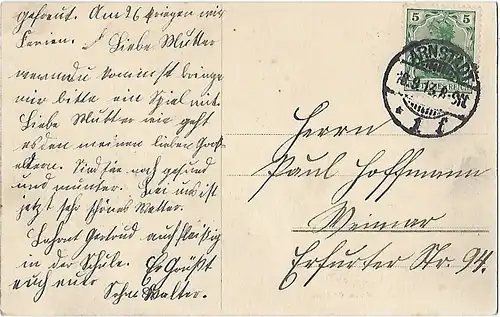 gefreut. Am 26 kriegen wir
Ferien. Liebe Mutter
wenn du kommst bringe
mir bitte ein Spiel mit.
Liebe Mutter wie geht
es den meinen lieben Groß-
eltern. Sind sie noch gesund
und munter. Bei uns ist
jetzt sehr schönes Wetter.
Lehrnt Gertrud auch fleißig
in der Schule. Es Grüßt
euch euer
Sohn Walter.
5 5
ARNSTADT
* 1 f
Herrn
Paul Hoffmann
Weimar
Erfurter Str. 94.